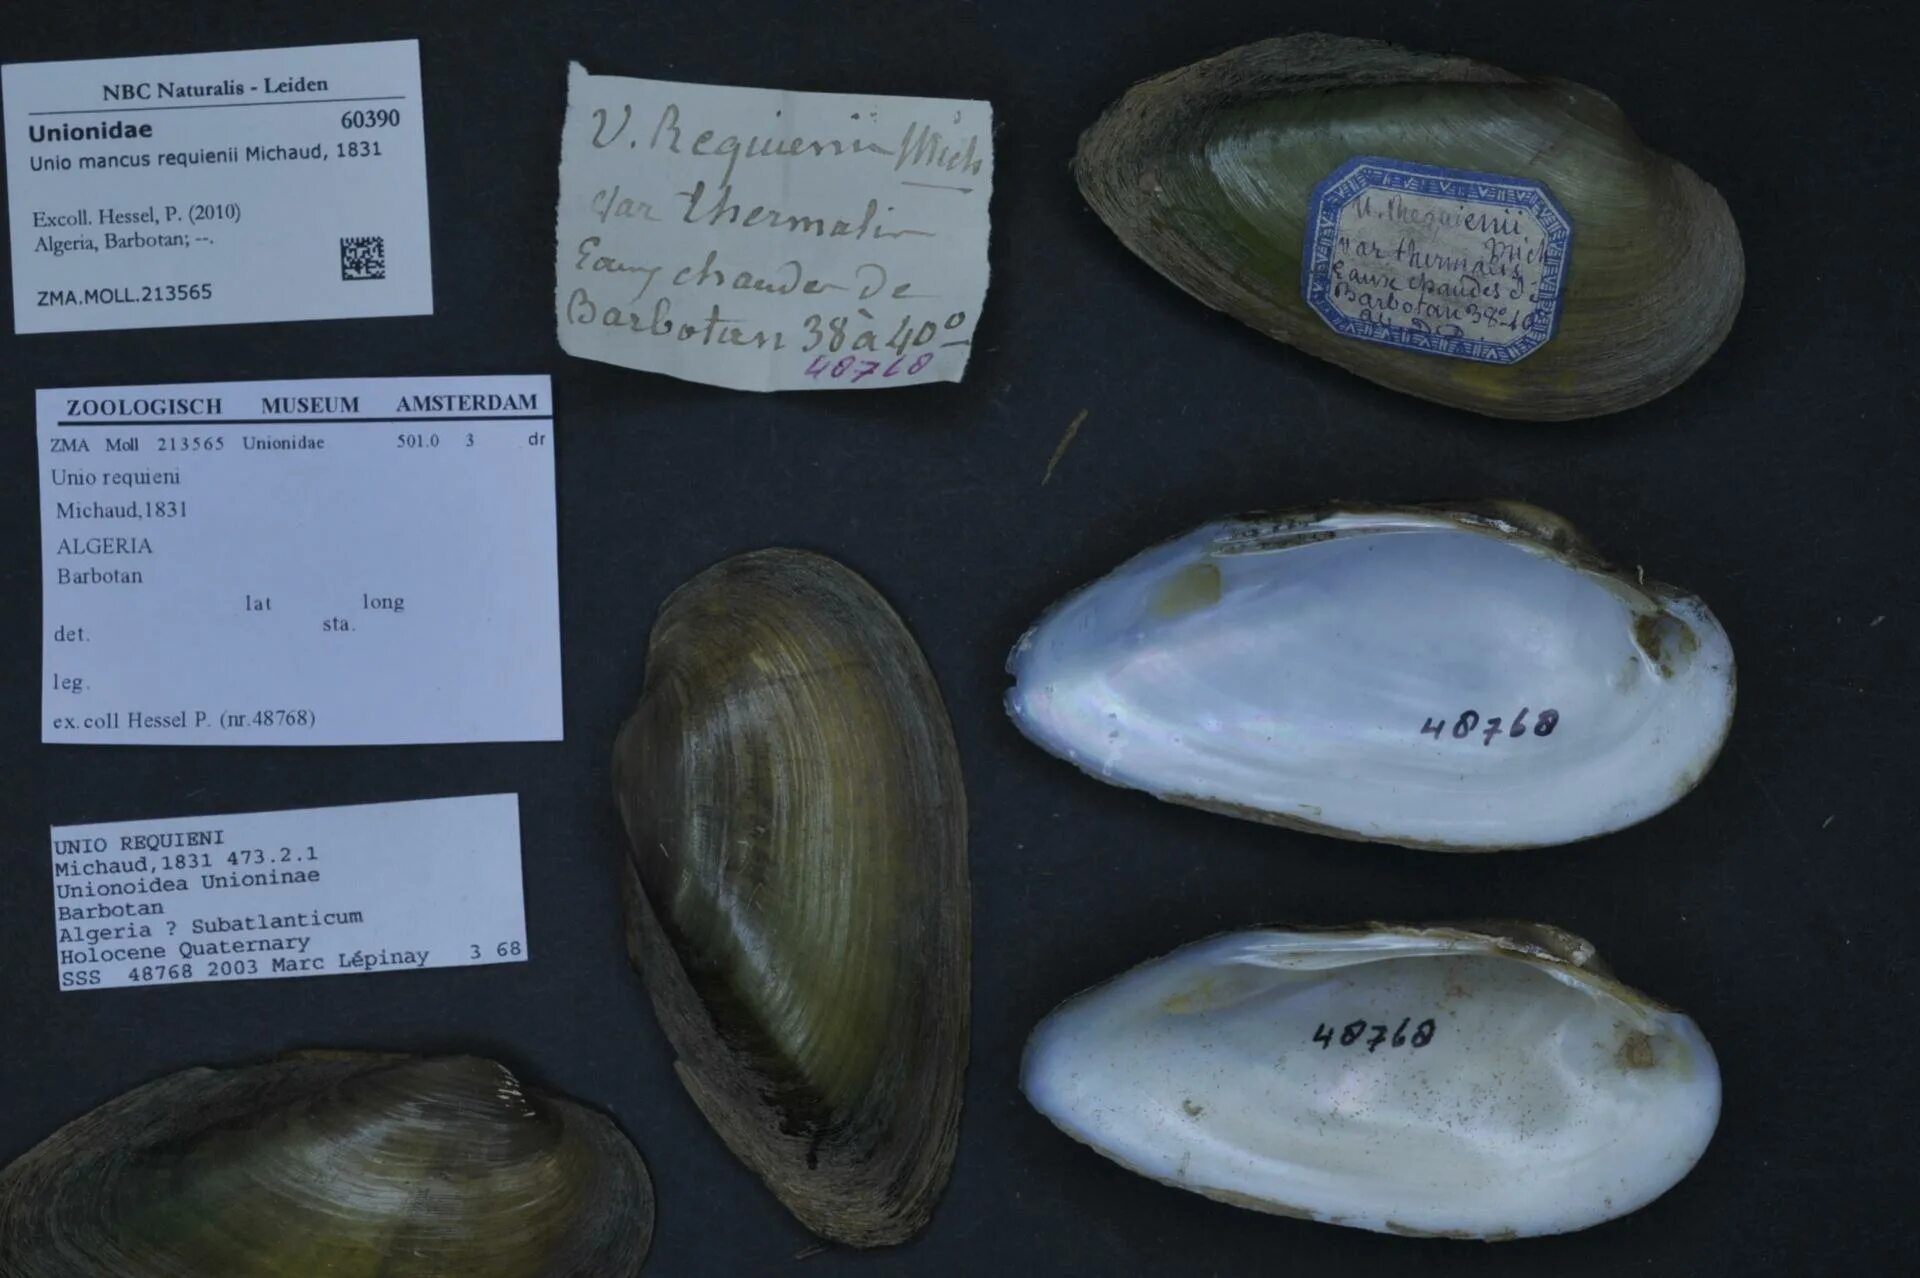 NBC Naturalis - Leiden
Unionidae 60390
Unio mancus requienii Michaud, 1831
Excoll. Hessel, P. (2010)
Algeria, Barbotan; --.
ZMA.MOLL.213565
ZOOLOGISCH MUSEUM AMSTERDAM
ZMA Moll 213565 Unionidae 501.0 3 dr
Unio requieni
Michaud,1831
ALGERIA
Barbotan
lat long
det. sta.
leg.
ex.coll Hessel P. (nr.48768)
UNIO REQUIENI
Michaud,1831 473.2.1
Unionoidea Unioninae
Barbotan
Algeria ? Subatlanticum
Holocene Quaternary
SSS 48768 2003 Marc Lépinay 3 68
U. Requienii Mich
var thermalis
Eaux chaudes de
Barbotan 38 à 40°
48768
U. Requienii
Mich
var thermalis
Eaux chaudes de
Barbotan 38°
48768
48768